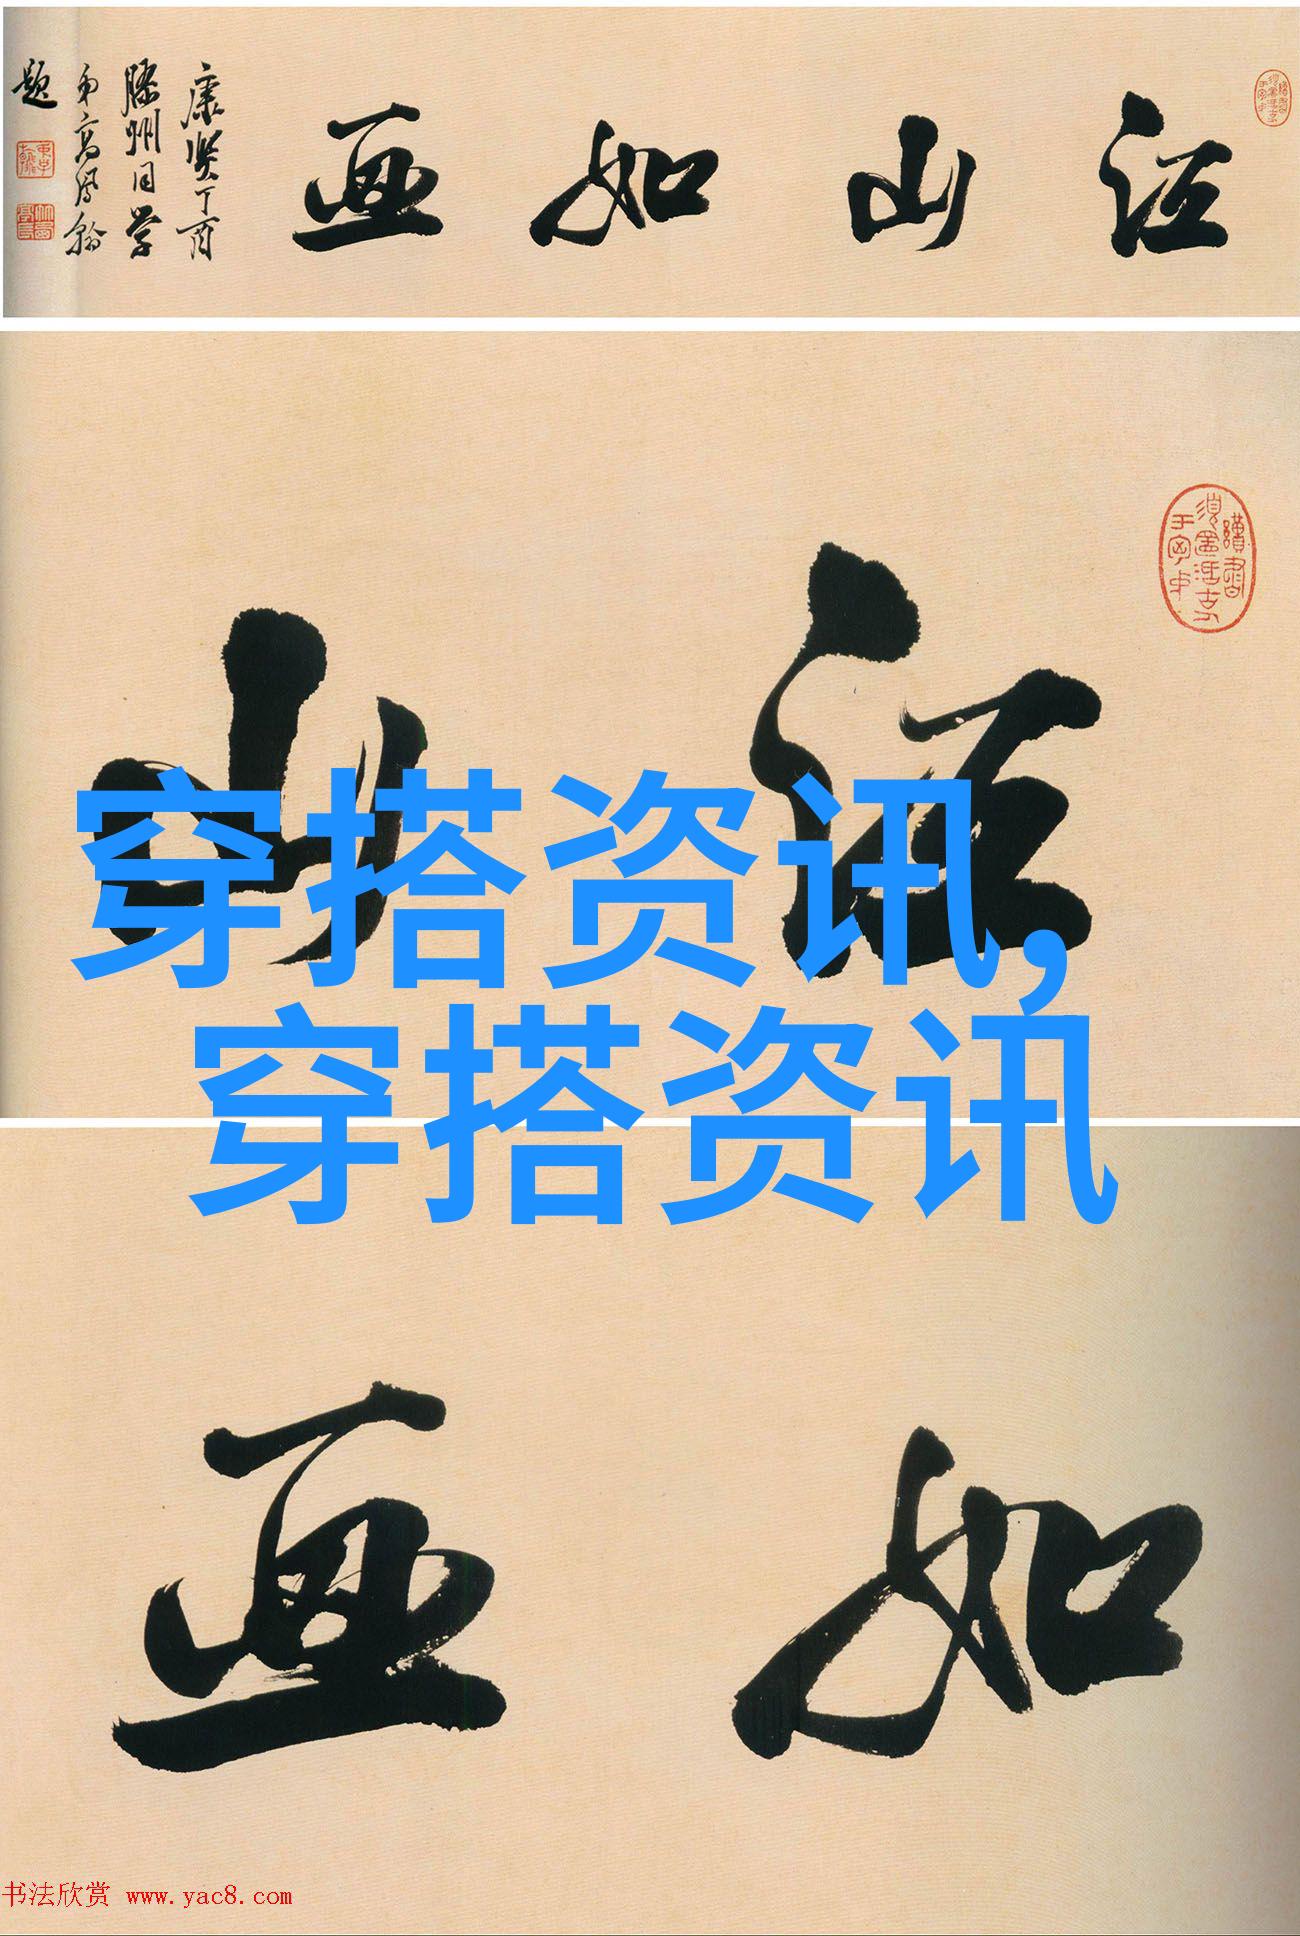 江山如画
康熙丁酉
滕州同学
弟高凤翰
题
江山
穿搭资讯,
穿搭资讯
如画
书法欣赏 www.yac8.com